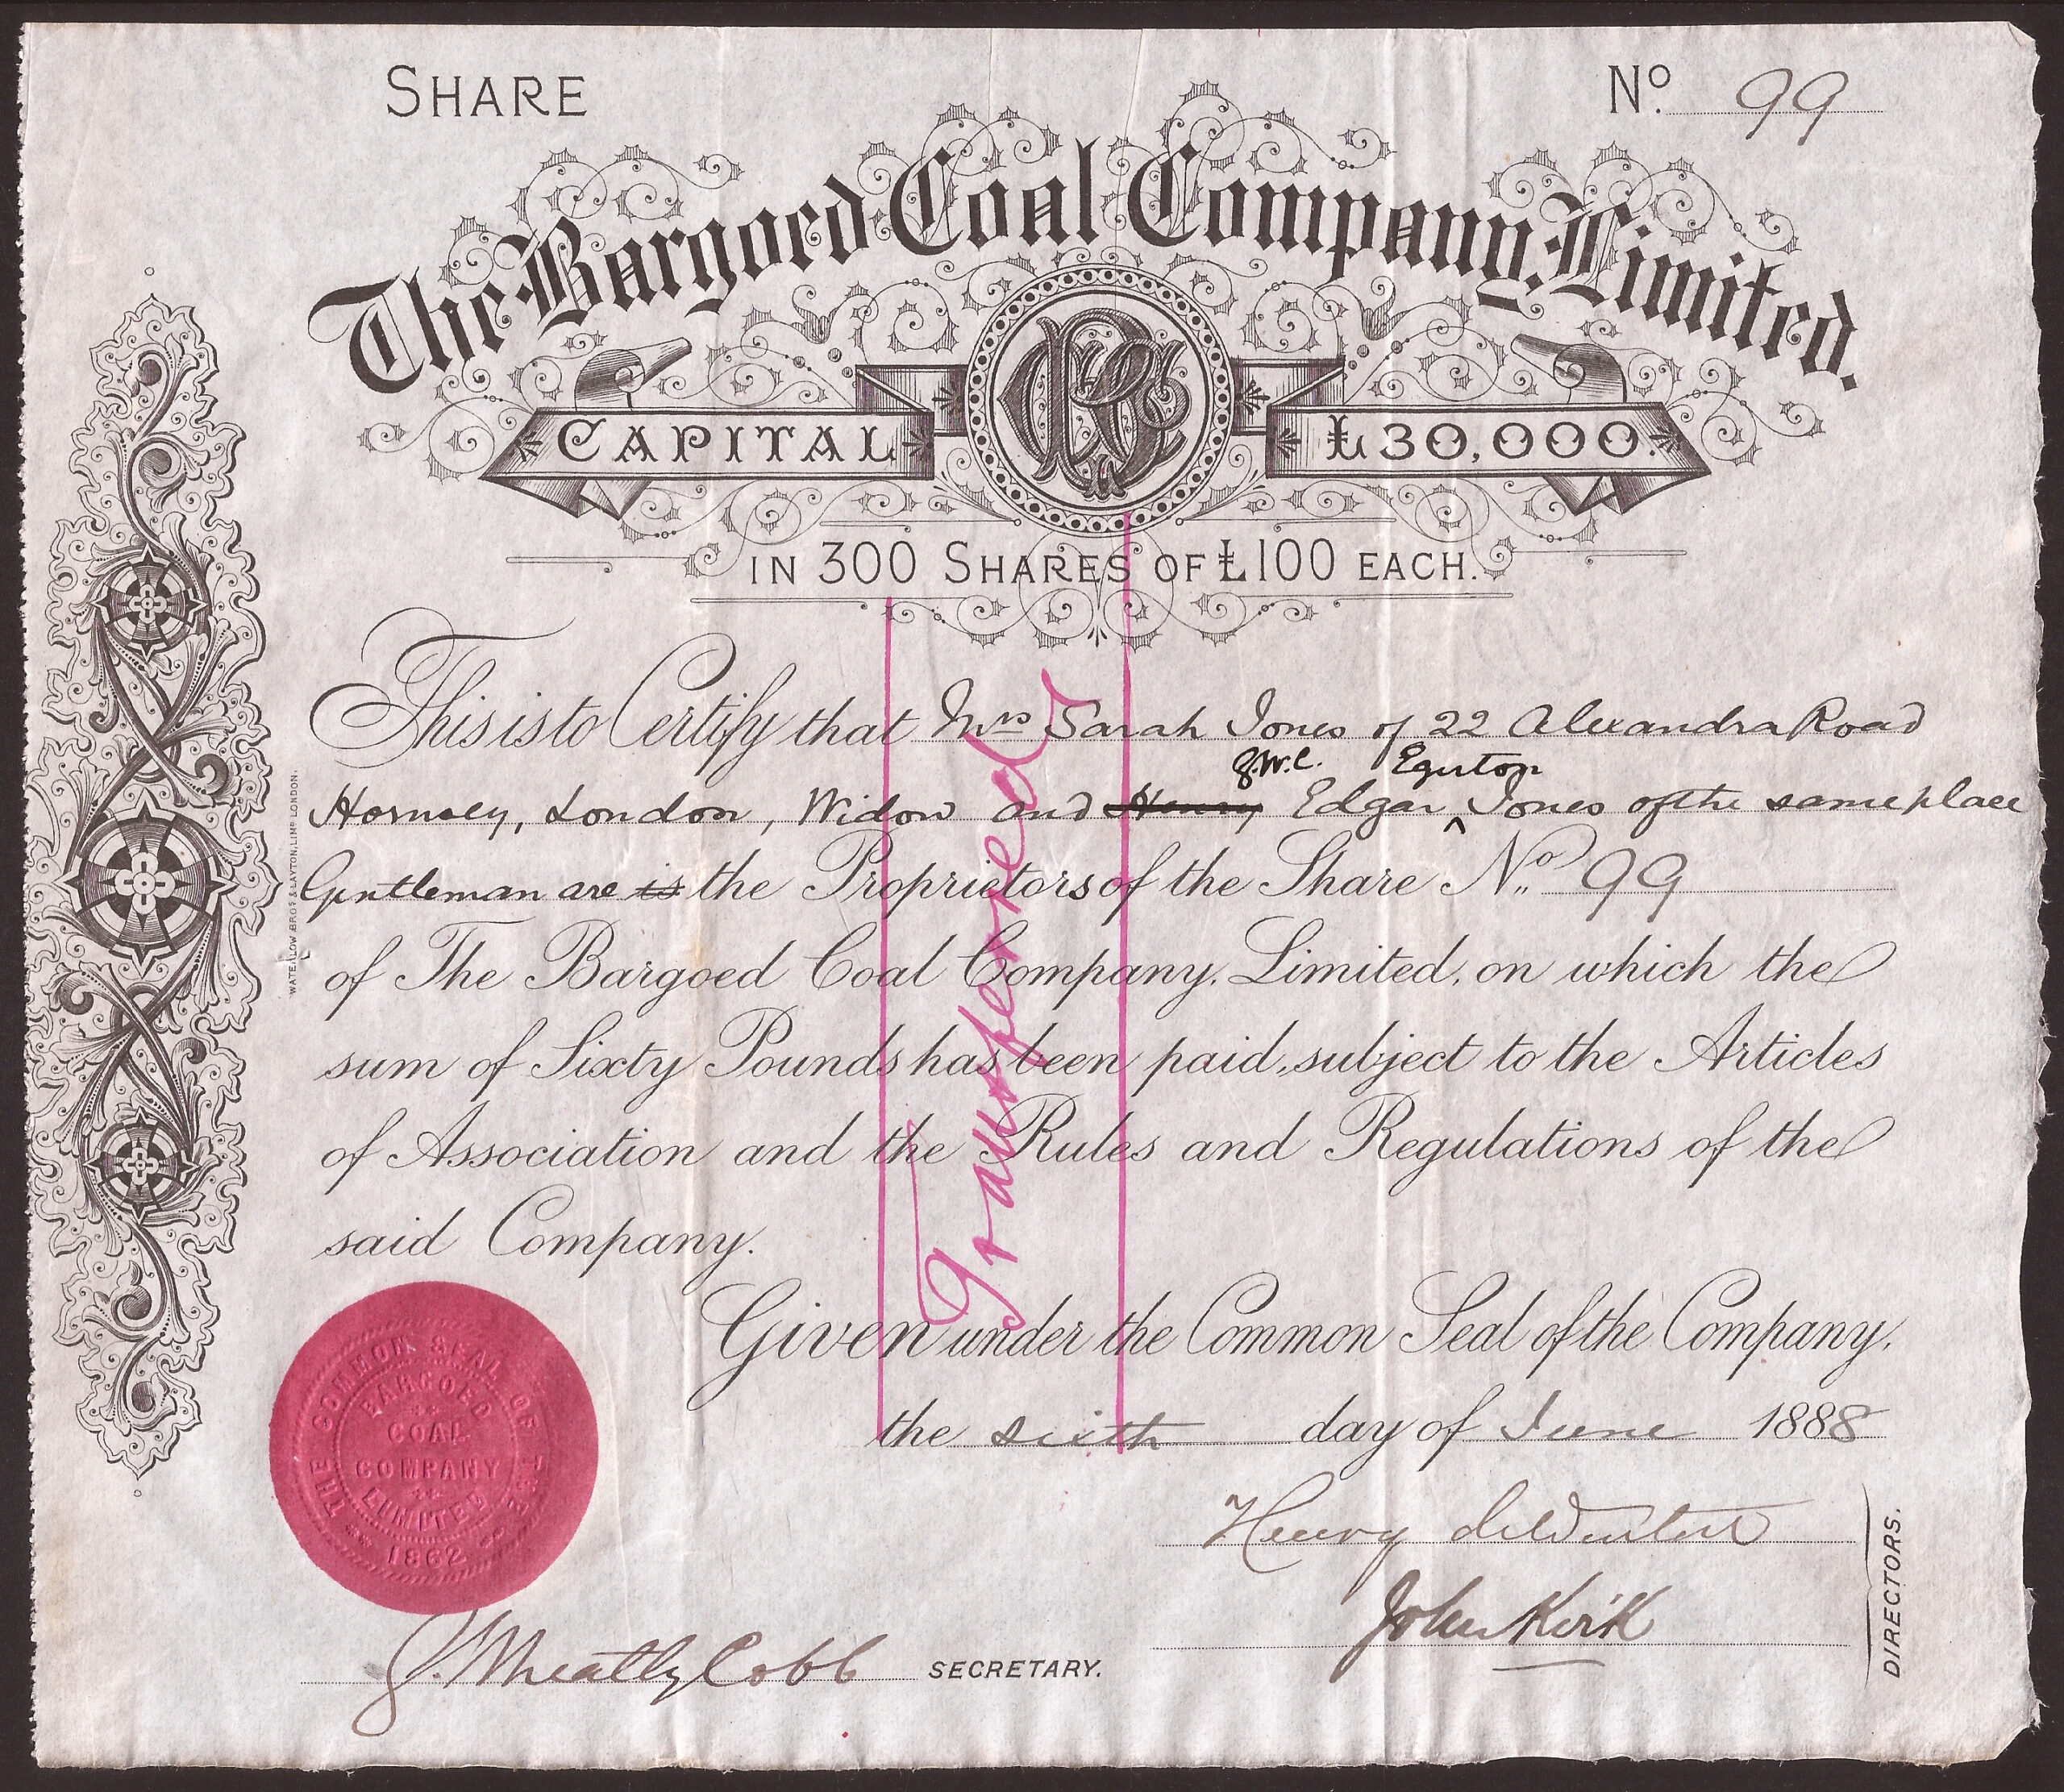 SHARE
No. 99
The Bargoed Coal Company, Limited.
CAPITAL £30,000.
IN 300 SHARES OF £100 EACH.
This is to Certify that Mrs Sarah Jones of 22 Alexandra Road
J.W.C. Egerton
Hornsey, London, Widow and Henry Edgar ^ Jones of the same place
Gentleman are is the Proprietors of the Share No. 99
of The Bargoed Coal Company, Limited, on which the
sum of Sixty Pounds has been paid, subject to the Articles
of Association and the Rules and Regulations of the
said Company.
Given under the Common Seal of the Company,
the sixth day of June 1888
Transferred
THE COMMON SEAL OF THE
BARGOED
COAL
COMPANY
LIMITED
1862
Henry
John Kirk
DIRECTORS.
J. Wheatly Cobb SECRETARY.
WATERLOW BROS. & LAYTON, LIMD. LONDON.